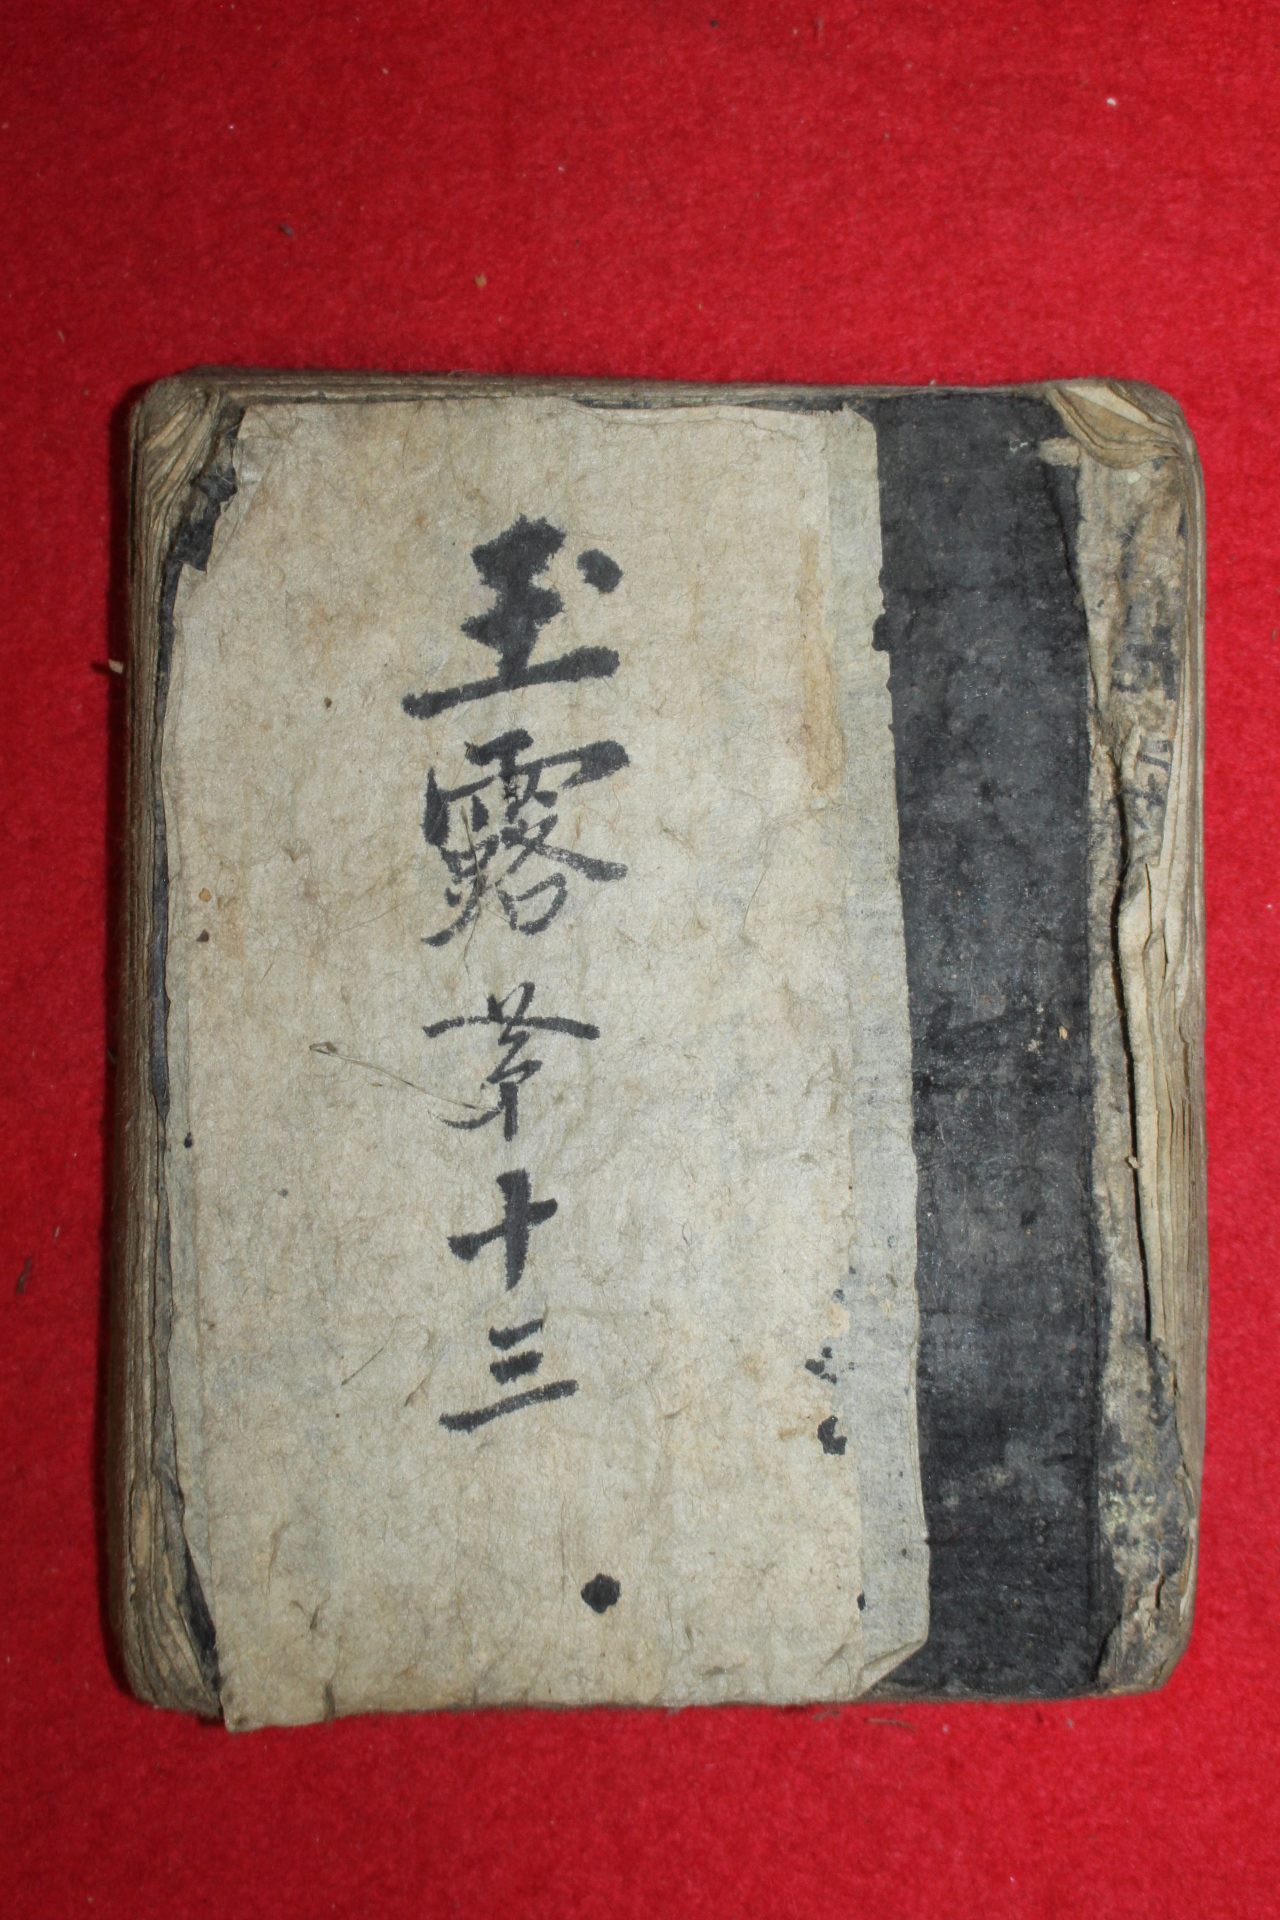 玉露茅十三